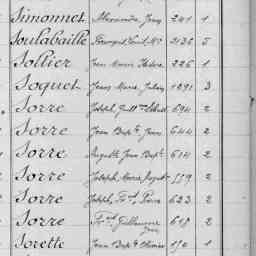 Simonnet Alexandre Jean 241 1
Soulabaille François Louis Me 2136 5
Sollier Jean Marie Isidore 226 1
Soquet Jean Marie Julien 1291 3
Sorre Joseph Guill 694 2
Sorre Jean Bapte Jean 644 2
Sorre Auguste Jean Bapte 614 2
Sorre Joseph Marie August 559 2
Sorre Joseph Fs Pierre 623 2
Sorre Fs Guillaume Jean 618 2
Sorette Jean Bapte Olivier 150 1